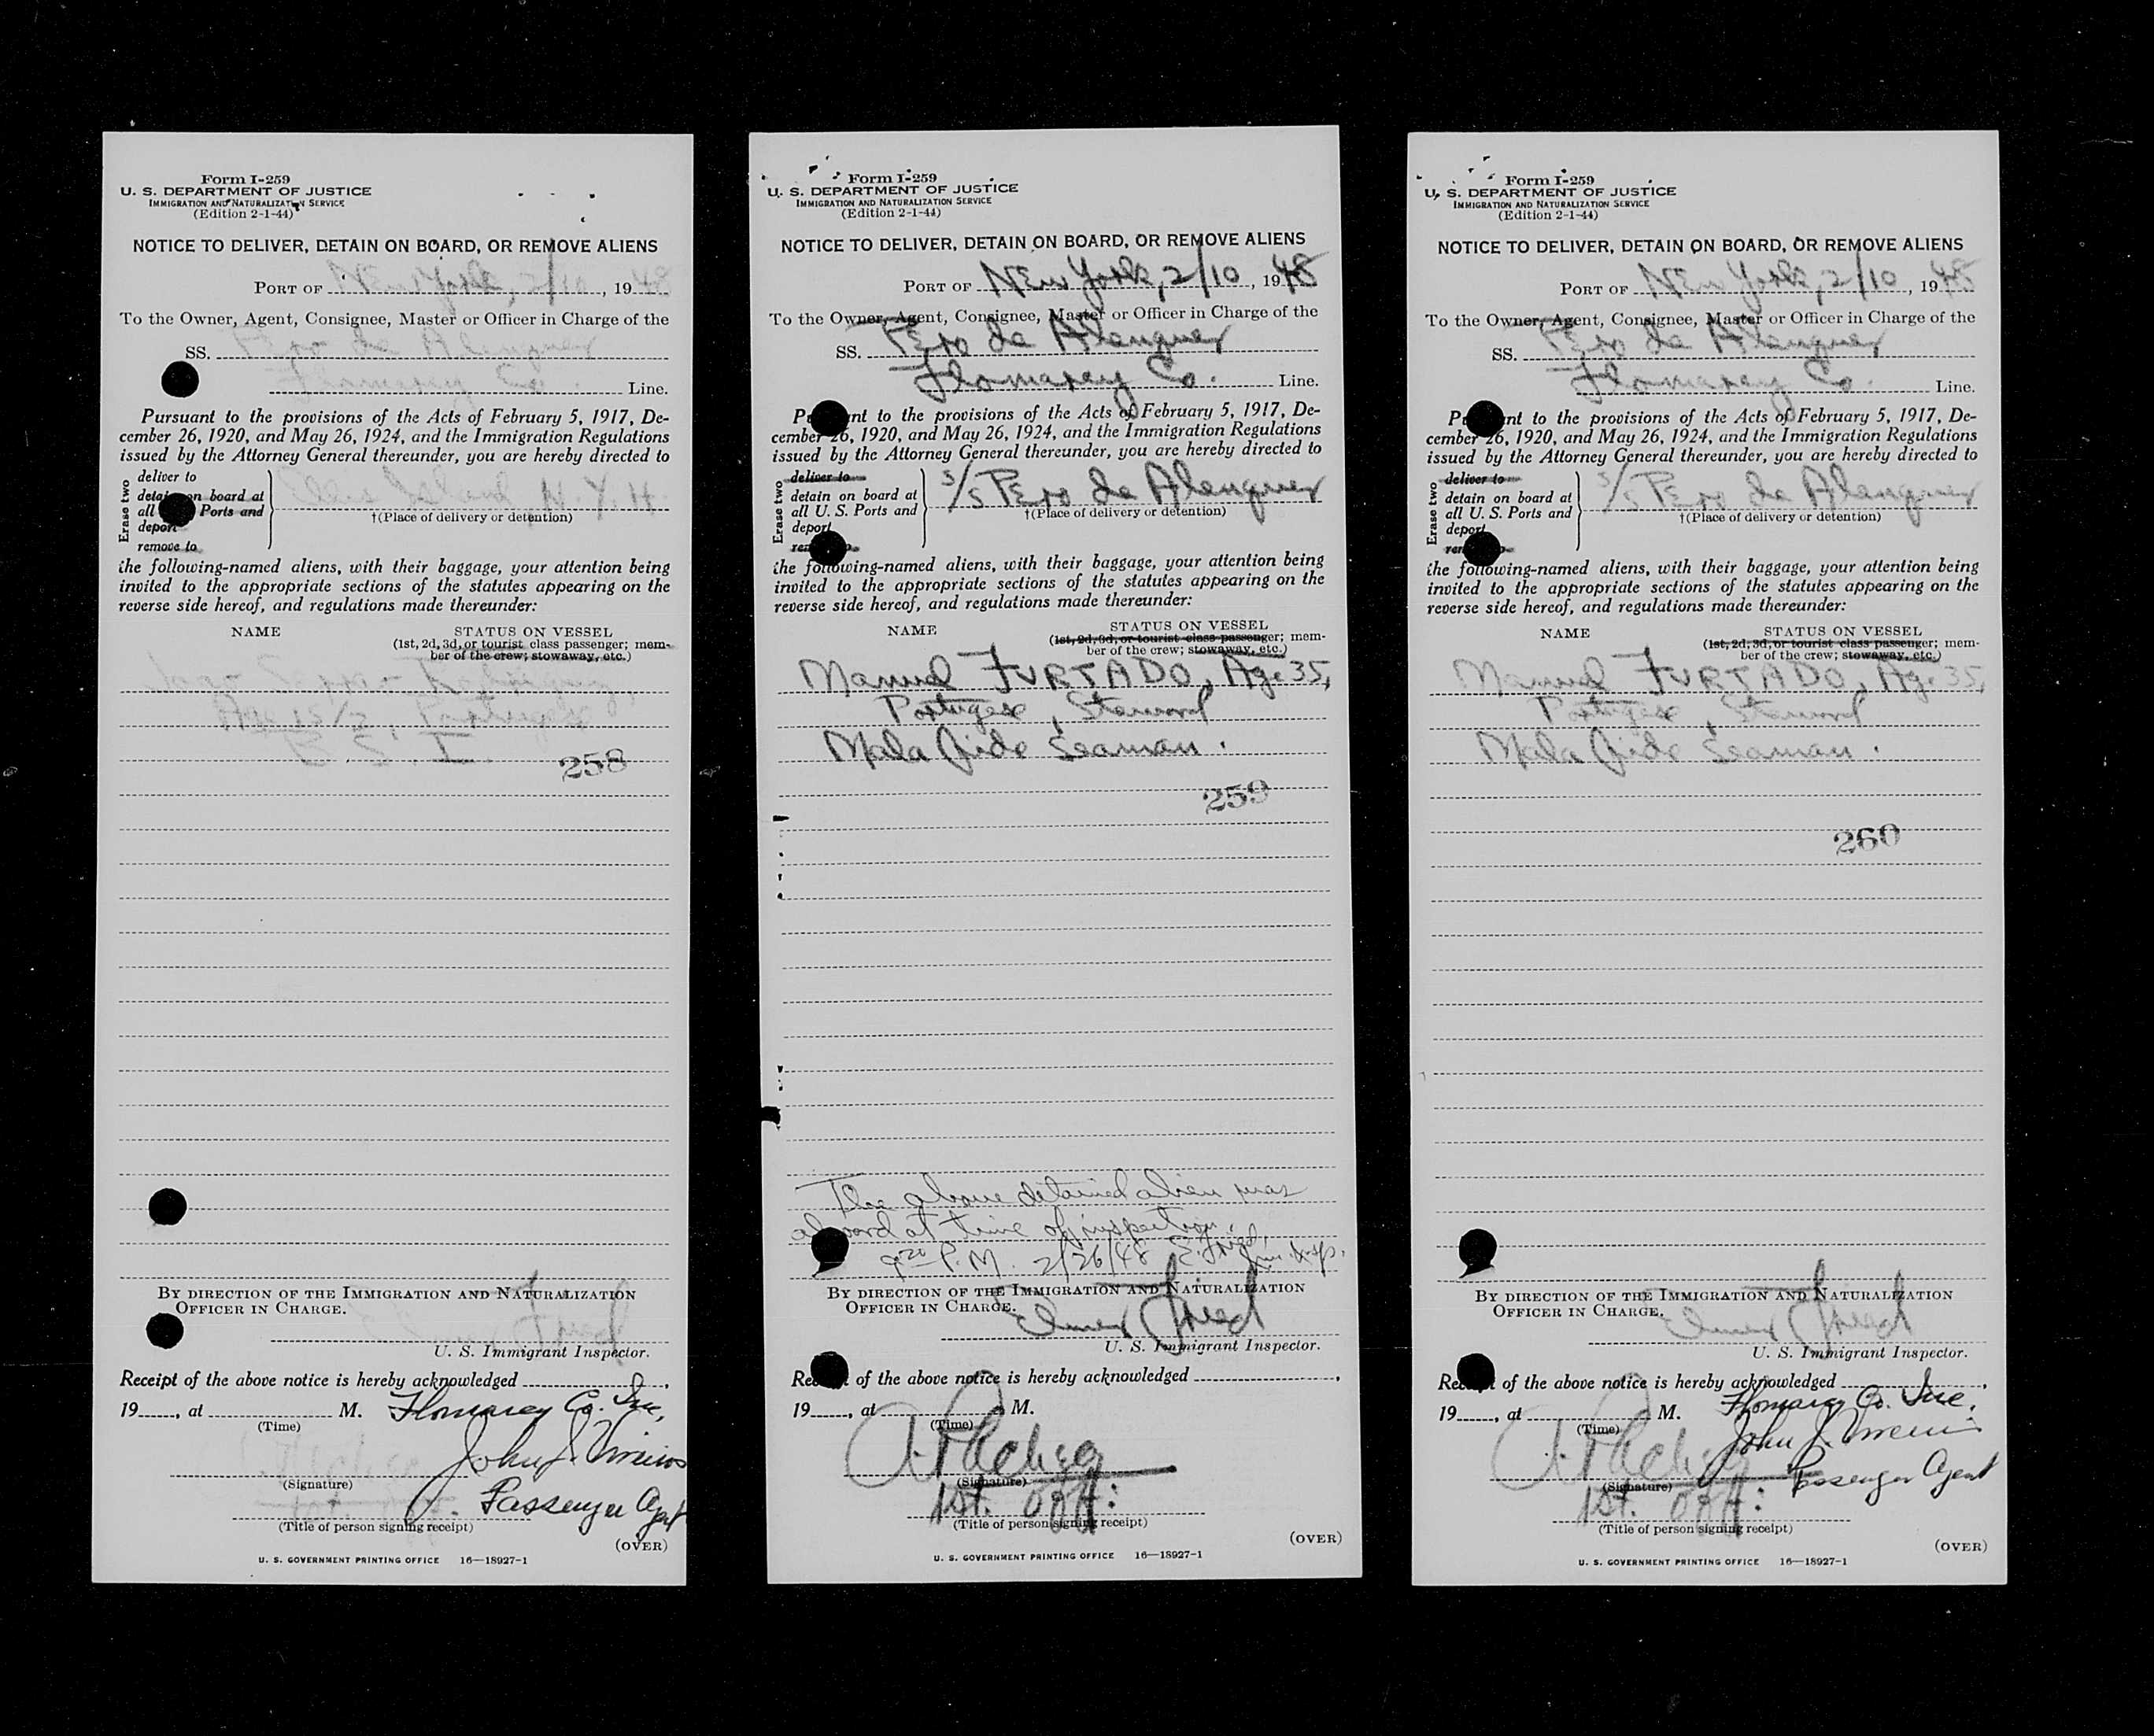 Form I-259
U. S. DEPARTMENT OF JUSTICE
IMMIGRATION AND NATURALIZATION SERVICE
(Edition 2-1-44)
NOTICE TO DELIVER, DETAIN ON BOARD, OR REMOVE ALIENS
PORT OF New York, 2/10, 1948
To the Owner, Agent, Consignee, Master or Officer in Charge of the
SS. Pero de Alenquer
Flomarcy Co. Line.
Pursuant to the provisions of the Acts of February 5, 1917, De-
cember 26, 1920, and May 26, 1924, and the Immigration Regulations
issued by the Attorney General thereunder, you are hereby directed to
Erase two
deliver to
detain on board at
all Ports and
deport
remove to
Ellis Island, N. Y. H.
†(Place of delivery or detention)
the following-named aliens, with their baggage, your attention being
invited to the appropriate sections of the statutes appearing on the
reverse side hereof, and regulations made thereunder:
NAME STATUS ON VESSEL
(1st, 2d, 3d, or tourist class passenger; mem-
ber of the crew; stowaway, etc.)
B. S. I.
258
BY DIRECTION OF THE IMMIGRATION AND NATURALIZATION
OFFICER IN CHARGE.
U. S. Immigrant Inspector.
Receipt of the above notice is hereby acknowledged
19 , at M. Flomarcy Co. Inc.,
(Time)
John J.
(Signature)
Passenger Agent
(Title of person signing receipt)
(OVER)
U. S. GOVERNMENT PRINTING OFFICE 16—18927-1
Form I-259
U. S. DEPARTMENT OF JUSTICE
IMMIGRATION AND NATURALIZATION SERVICE
(Edition 2-1-44)
NOTICE TO DELIVER, DETAIN ON BOARD, OR REMOVE ALIENS
PORT OF New York, 2/10, 1948
To the Owner, Agent, Consignee, Master or Officer in Charge of the
SS. Pero de Alenquer
Flomarcy Co. Line.
Pursuant to the provisions of the Acts of February 5, 1917, De-
cember 26, 1920, and May 26, 1924, and the Immigration Regulations
issued by the Attorney General thereunder, you are hereby directed to
Erase two
deliver to
detain on board at
all U. S. Ports and
deport
remove to
S/S Pero de Alenquer
†(Place of delivery or detention)
the following-named aliens, with their baggage, your attention being
invited to the appropriate sections of the statutes appearing on the
reverse side hereof, and regulations made thereunder:
NAME STATUS ON VESSEL
(1st, 2d, 3d, or tourist class passenger; mem-
ber of the crew; stowaway, etc.)
Manuel FURTADO, Age 35,
Portugese, Steward
Mala Fide Seaman.
259
The above detained alien was
aboard at time of inspection.
9:20 P.M. 2/26/48 E. Freed, Imm. Insp.
BY DIRECTION OF THE IMMIGRATION AND NATURALIZATION
OFFICER IN CHARGE.
Elmer Freed
U. S. Immigrant Inspector.
Receipt of the above notice is hereby acknowledged
19 , at M.
(Time)
(Signature)
1st. Off:
(Title of person signing receipt)
(OVER)
U. S. GOVERNMENT PRINTING OFFICE 16—18927-1
Form I-259
U. S. DEPARTMENT OF JUSTICE
IMMIGRATION AND NATURALIZATION SERVICE
(Edition 2-1-44)
NOTICE TO DELIVER, DETAIN ON BOARD, OR REMOVE ALIENS
PORT OF New York, 2/10, 1948
To the Owner, Agent, Consignee, Master or Officer in Charge of the
SS. Pero de Alenquer
Flomarcy Co. Line.
Pursuant to the provisions of the Acts of February 5, 1917, De-
cember 26, 1920, and May 26, 1924, and the Immigration Regulations
issued by the Attorney General thereunder, you are hereby directed to
Erase two
deliver to
detain on board at
all U. S. Ports and
deport
remove to
S/S Pero de Alenquer
†(Place of delivery or detention)
the following-named aliens, with their baggage, your attention being
invited to the appropriate sections of the statutes appearing on the
reverse side hereof, and regulations made thereunder:
NAME STATUS ON VESSEL
(1st, 2d, 3d, or tourist class passenger; mem-
ber of the crew; stowaway, etc.)
Manuel FURTADO, Age 35,
Portugese, Steward
Mala Fide Seaman.
260
BY DIRECTION OF THE IMMIGRATION AND NATURALIZATION
OFFICER IN CHARGE.
Elmer Freed
U. S. Immigrant Inspector.
Receipt of the above notice is hereby acknowledged
19 , at M. Flomarcy Co. Inc.
(Time)
John J.
(Signature) Passenger Agent
1st. Off:
(Title of person signing receipt)
(OVER)
U. S. GOVERNMENT PRINTING OFFICE 16—18927-1